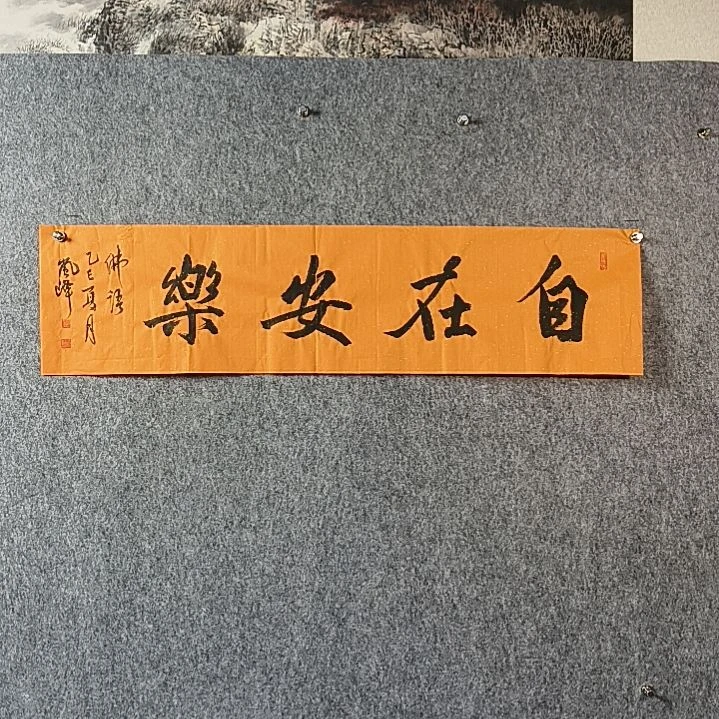 自在安樂
佛語
乙巳夏月
嵐峰